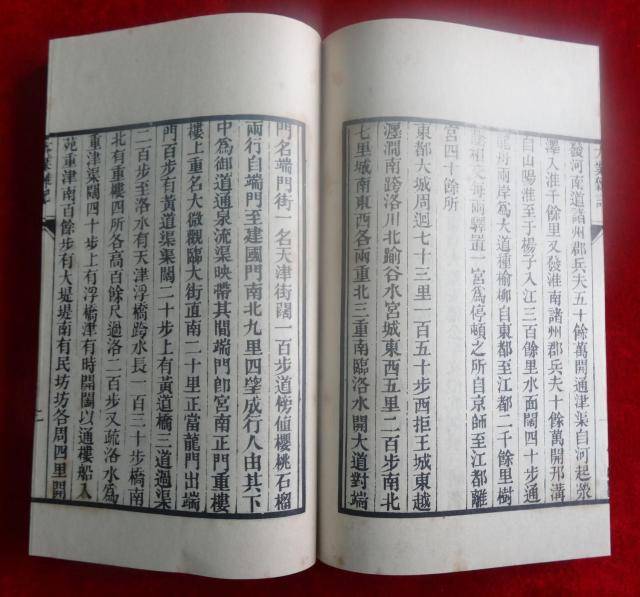 發河南道諸州郡兵夫五十餘萬開通津渠自河起滎
澤入淮千餘里又發淮南諸州郡兵夫十餘萬開邗溝
自山陽淮至于楊子入江三百餘里水面闊四十步通
龍舟兩岸為大道種榆柳自東都至江都二千餘里樹
蔭相交每兩驛置一宮為停頓之所自京師至江都離
宮四十餘所
東都大城周迴七十三里一百五十步西拒王城東越
瀍澗南跨洛川北踰谷水宮城東西五里二百步南北
七里城南東西各兩重北三重南臨洛水開大道對端
門名端門街一名天津街闊一百步道傍植櫻桃石榴
兩行自端門至建國門南北九里四望成行人由其下
中為御道通泉流渠映帶其間端門即宮南正門重樓
樓上重名大微觀臨大街直南二十里正當龍門出端
門百步有黃道渠渠闊二十步上有黃道橋三道過渠
二百步至洛水有天津浮橋跨水長一百三十步橋南
北有重樓四所各高百餘尺過洛二百步又疏洛水為
重津渠闊四十步上有浮橋津有時開闔以通樓船入
苑重津南百餘步有大堤堤南有民坊坊各周四里開